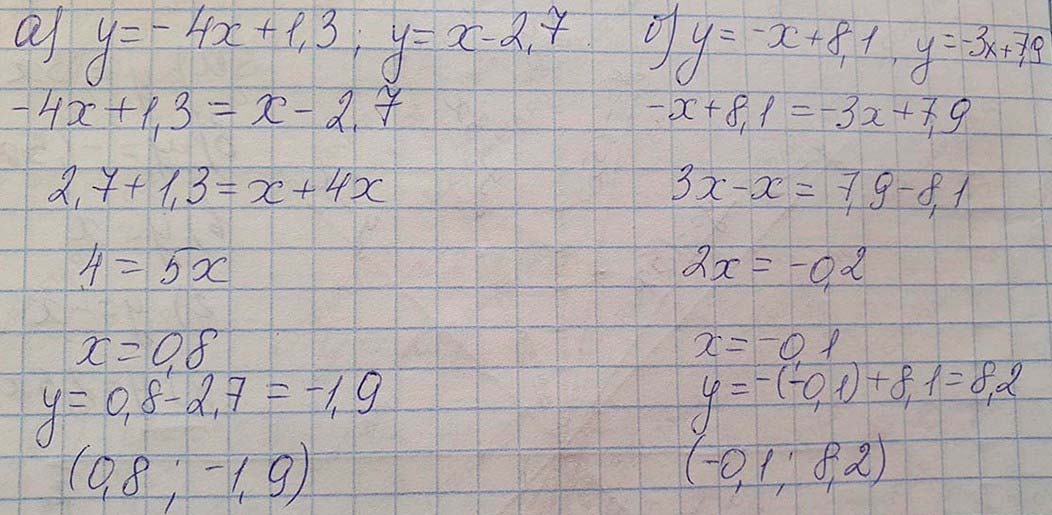 а) y = -4x + 1,3; y = x - 2,7
-4x + 1,3 = x - 2,7
2,7 + 1,3 = x + 4x
4 = 5x
x = 0,8
y = 0,8 - 2,7 = -1,9
(0,8; -1,9)
б) y = -x + 8,1, y = -3x + 7,9
-x + 8,1 = -3x + 7,9
3x - x = 7,9 - 8,1
2x = -0,2
x = -0,1
y = -(-0,1) + 8,1 = 8,2
(-0,1; 8,2)